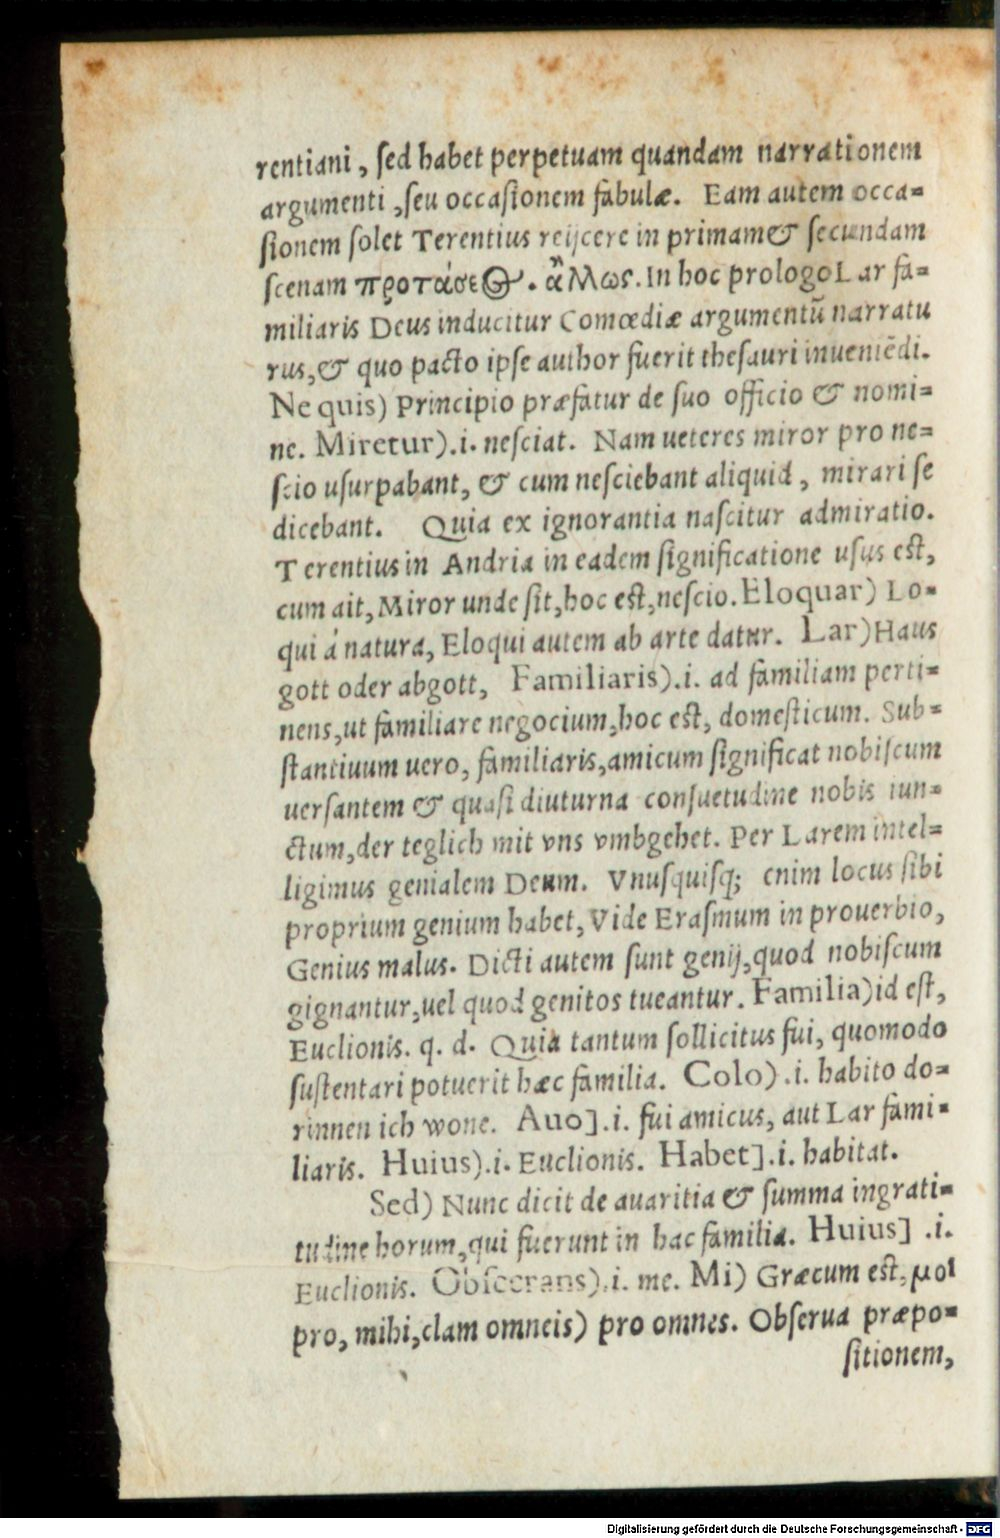 rentiani, sed habet perpetuam quandam narrationem
argumenti, seu occasionem fabulæ. Eam autem occa=
sionem solet Terentius reijcere in primam & secundam
scenam προτάσεως. ἄλλως. In hoc prologo Lar fa=
miliaris Deus inducitur Comœdiæ argumentũ narratu
rus, & quo pacto ipse author fuerit thesauri inueniẽdi.
Ne quis) Principio præfatur de suo officio & nomi=
ne. Miretur).i. nesciat. Nam ueteres miror pro ne=
scio usurpabant, & cum nesciebant aliquid, mirari se
dicebant. Quia ex ignorantia nascitur admiratio.
Terentius in Andria in eadem significatione usus est,
cum ait, Miror unde sit, hoc est, nescio. Eloquar) Lo=
qui á natura, Eloqui autem ab arte datur. Lar) Haus
gott oder abgott, Familiaris).i. ad familiam perti=
nens, ut familiare negocium, hoc est, domesticum. Sub=
stantiuum uero, familiaris, amicum significat nobiscum
uersantem & quasi diuturna consuetudine nobis iun=
ctum, der teglich mit vns vmbgehet. Per Larem intel=
ligimus genialem Deum. Vnusquisq; enim locus sibi
proprium genium habet, Vide Erasmum in prouerbio,
Genius malus. Dicti autem sunt genij, quod nobiscum
gignantur, uel quod genitos tueantur. Familia) id est,
Euclionis. q. d. Quia tantum sollicitus fui, quomodo
sustentari potuerit hæc familia. Colo).i. habito do=
rinnen ich wone. Auo].i. fui amicus, aut Lar fami=
liaris. Huius).i. Euclionis. Habet].i. habitat.
Sed) Nunc dicit de auaritia & summa ingrati=
tudine horum, qui fuerunt in hac familia. Huius] .i.
Euclionis. Obsecrans).i. me. Mi) Græcum est, μοὶ
pro, mihi, clam omneis) pro omnes. Obserua præpo=
sitionem,
Digitalisierung gefördert durch die Deutsche Forschungsgemeinschaft - DFG